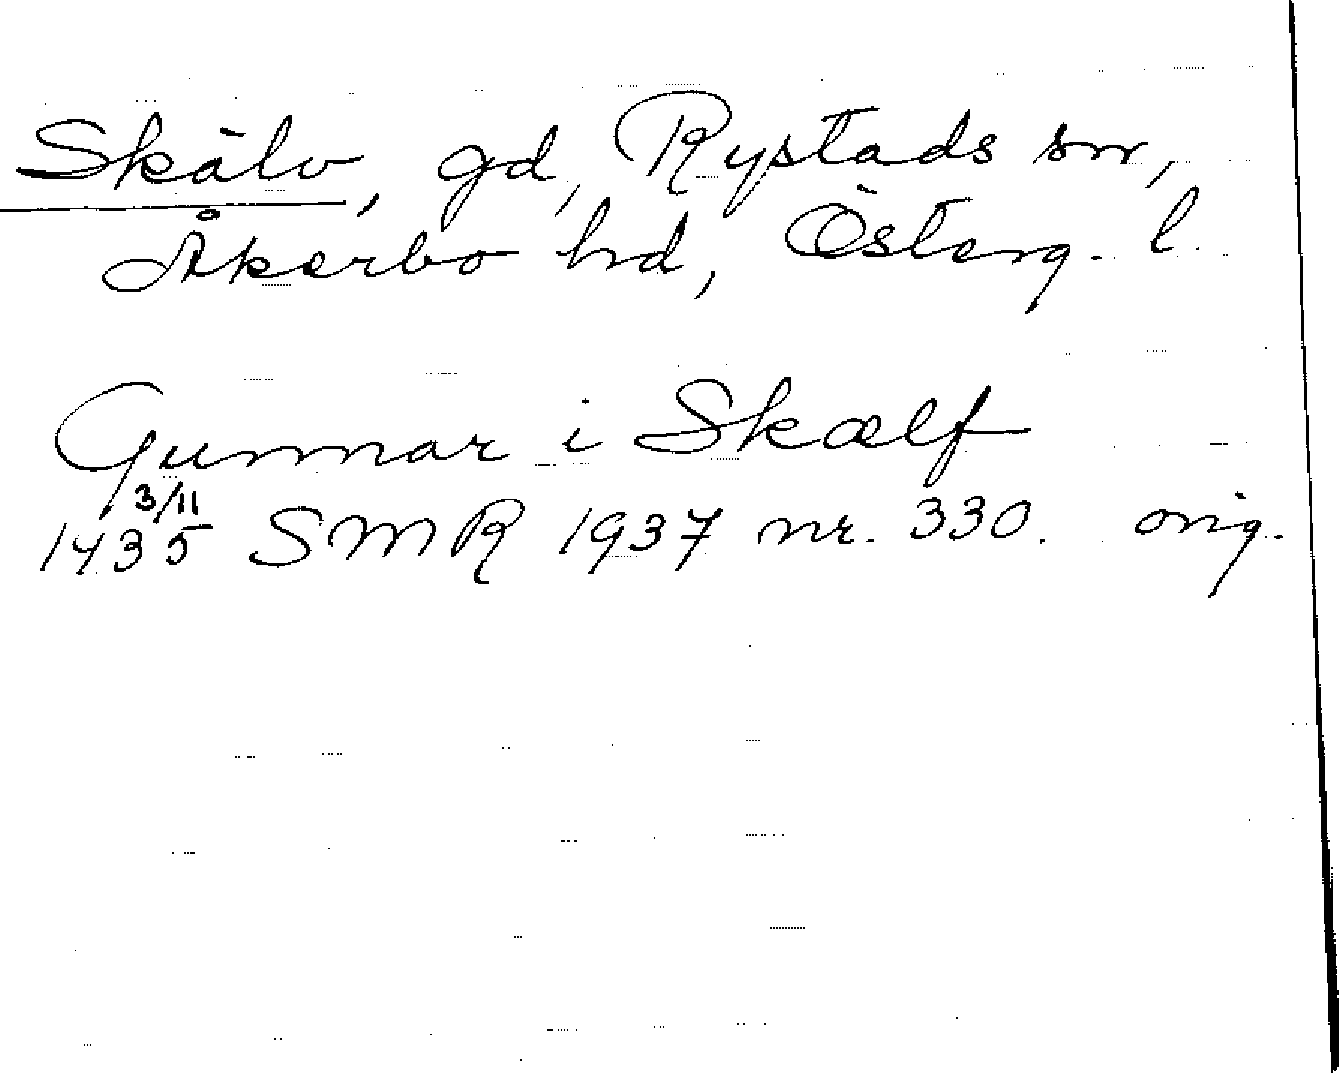 Skälv, gd, Rystads sn,
Åkerbo hd, Österg. l.
Gunnar i Skælf
3/11
1435 SMR 1937 nr. 330. orig.